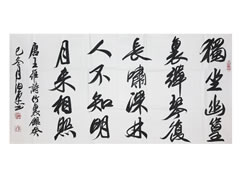 獨坐幽篁
裏彈琴復
長嘯深林
人不知明
月来相照
唐王維詩竹裏館癸
巳冬月